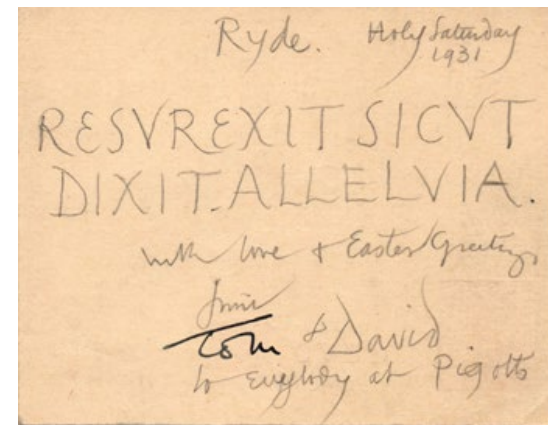 Ryde. Holy Saturday
1931
RESVREXIT SICVT
DIXIT. ALLELVIA.
with love & Easter Greetings
from
Tom & David
to everybody at Pigotts